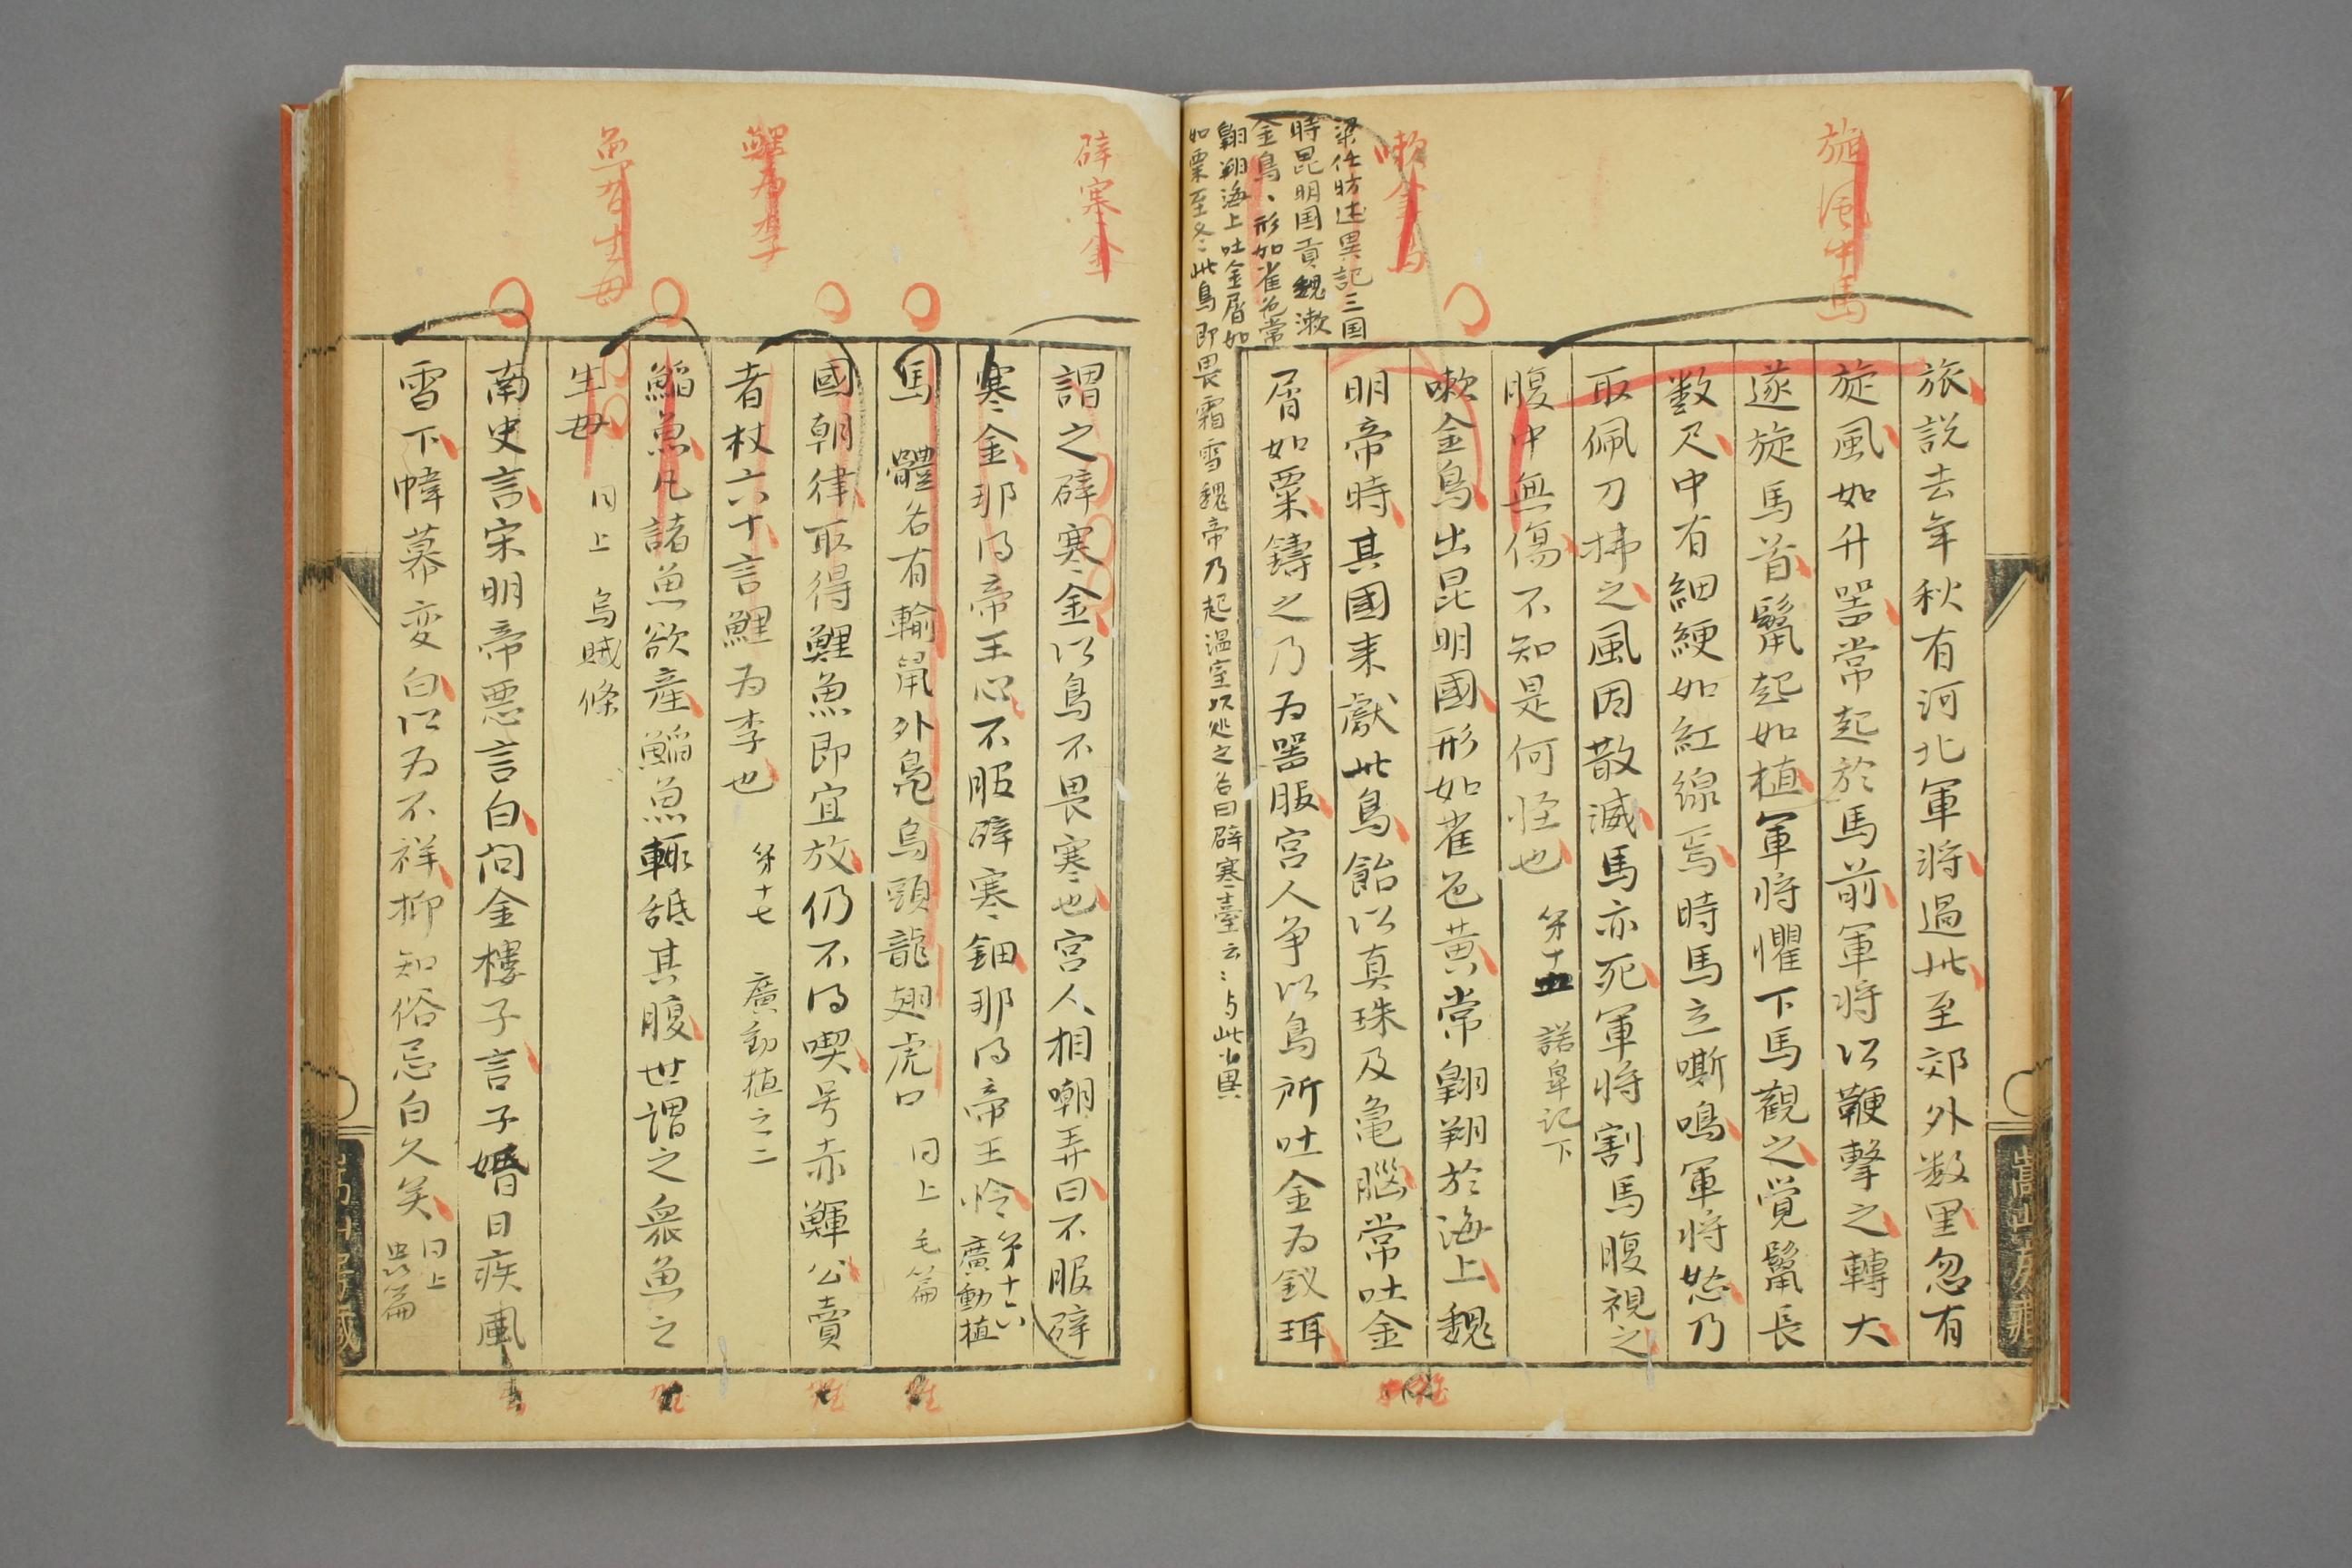 旋風中馬
旅説去年秋有河北軍将過此至郊外数里忽有
旋風如升器常起於馬前軍将以鞭撃之轉大
遂旋馬首鬣起如植軍将懼下馬觀之覚鬣長
数尺中有細綆如紅線焉時馬立嘶鳴軍将怒乃
取佩刀拂之風因散滅馬亦死軍将割馬腹視之
腹中無傷不知是何怪也 第十五 諾皐記下
嗽金鳥
嗽金鳥出昆明國形如雀色黄常翺翔於海上魏
明帝時其國来献此鳥飴以真珠及亀腦常吐金
屑如粟鑄之乃为器服宮人争以鳥所吐金为釵珥
梁任昉述異記三国
時昆明国貢魏漱
金鳥、形如雀色常
翺翔海上吐金屑如
如粟至冬此鳥即畏霜雪魏帝乃起温室以処之名曰辟寒臺云〻与此少異
辟寒金
謂之辟寒金以鳥不畏寒也宮人相嘲弄曰不服辟
寒金那得帝王心不服辟寒鈿那得帝王怜 第十六
廣動植
馬 體名有輸鼠外鳧烏頭龍翅虎口 同上 毛篇
鯉为李
國朝律取得鯉魚即宜放仍不得喫号赤鯶公賣
者杖六十言鯉为李也 第十七 廣動植之二
魚智生母
鯔魚凡諸魚欲産鯔魚輙舐其腹世謂之衆魚之
生母 同上 烏賊條
南史言宋明帝悪言白问金樓子言子婚日疾風
雪下幃幕変白以为不祥抑知俗忌白久矣 同上
虫篇
嵩山房蔵